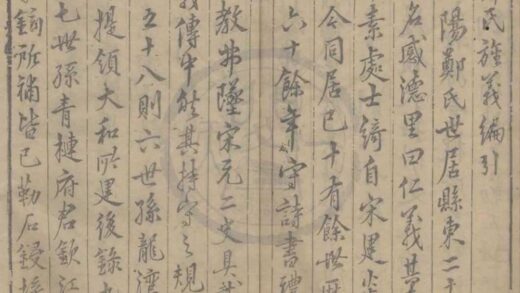 氏旌義編引
陽鄭氏世居縣東二十
名感德里曰仁義其
素處士綺自宋建炎
今同居已十有餘世歷
六十餘年守詩書禮
教弗墜宋元二史具載
義傳中然其持守之規
五十八則六世孫龍灣
提領大和所建後錄
七世孫青槤府君欽江
所補皆已勒石鋟梓